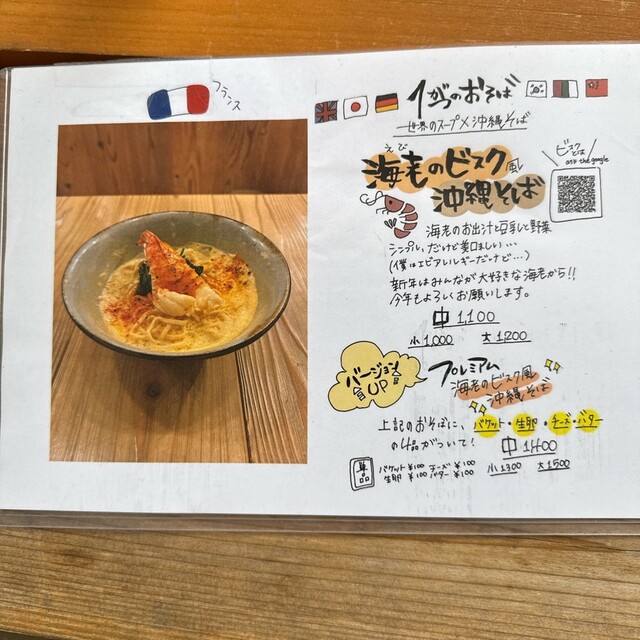 フランス
1がつのおそば
世界のスープ×沖縄そば
えび
海老のビスク風
沖縄そば
ビスク
とは
ask the google
海老のお出汁と豆乳と野菜
シンプル、だけど美味しい…
(僕はエビアレルギーだけど…)
新年はみんなが大好きな海老から!!
今年もよろしくお願いします。
中 1,100
小 1,000 大 1,200
バージョン
UP
プレミアム
海老のビスク風
沖縄そば
上記のおそばに、バケット・生卵・チーズ・バター
の4品がついて!
中 1,400
小 1300 大 1500
単品
バケット ¥100 チーズ ¥100
生卵 ¥100 バター ¥100